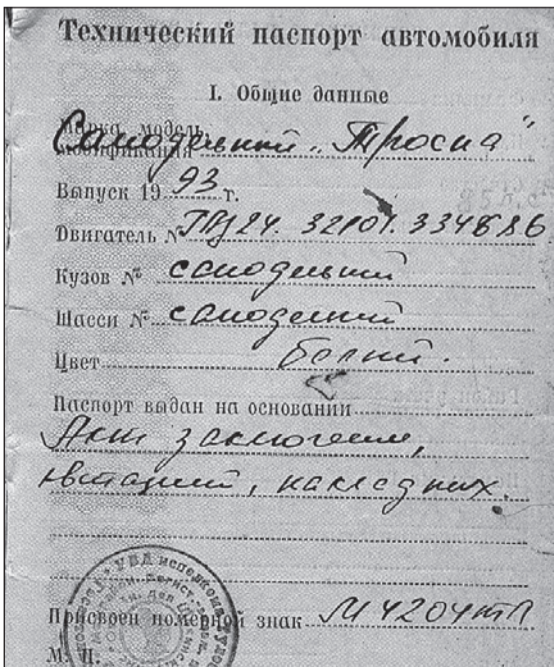 Технический паспорт автомобиля
I. Общие данные
Марка, модель,
модификация Самодельный „Тросна"
Выпуск 19 93 г.
Двигатель № 32101. 334
Кузов № самодельный
Шасси № самодельный
Цвет белый.
Паспорт выдан на основании
Акт заключение,
квитанций, накладных.
Присвоен номерной знак М 4204
М. П.